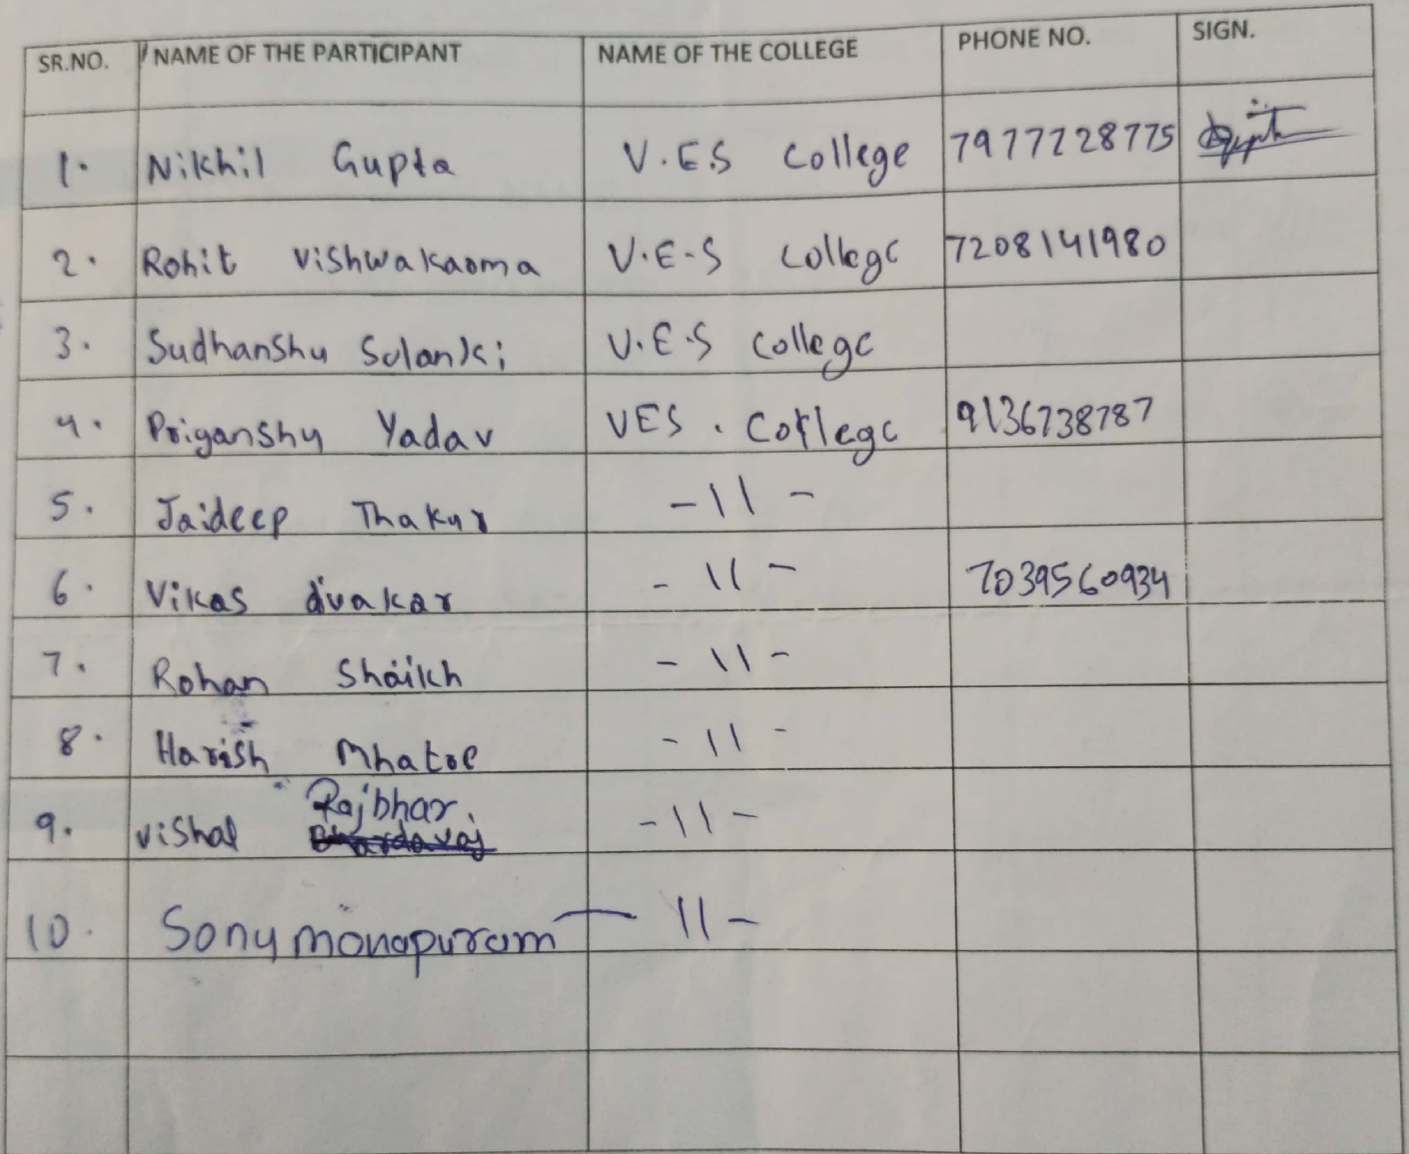 SR.NO. NAME OF THE PARTICIPANT NAME OF THE COLLEGE PHONE NO. SIGN.
1. Nikhil Gupta V.E.S College 7977728775
2. Rohit Vishwakarma V.E-S College 7208141980
3. Sudhanshu Solanki V.E.S College
4. Priyanshu Yadav VES. College 9136738787
5. Jaideep Thakur -11-
6. Vikas divakar -11- 7039560934
7. Rohan Shaikh -11-
8. Harish Mhatre -11-
9. Vishal Rajbhar. -11-
Bhardavaj
10. Sony monapuram -11-